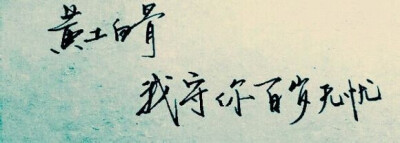 黄土白骨
我守你百岁无忧